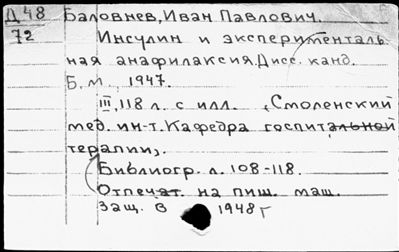 Д 48 Баловнев, Иван Павлович.
72 Инсулин и эксперименталь
ная анафилаксия. Дисс. канд.
Б. м., 1947.
III, 118 л. с илл. (Смоленский
мед. ин-т. Кафедра госпитальной
терапии).
Библиогр. л. 108-118.
Отпечат. на пиш. маш.
Защ. в 1948 г